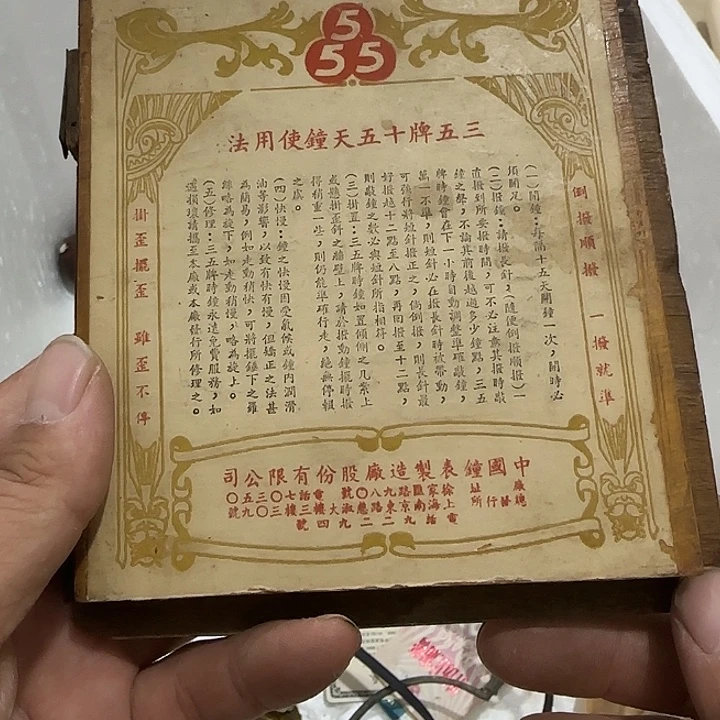 5
55
三五牌十五天鐘使用法
倒撥順撥 一撥就準
(一)開鐘:每隔十五天開鐘一次,開時必
須開足。
(二)撥鐘:請撥長針,(隨便倒撥順撥)一
直撥到所要撥時間,可不必注意其撥時敲
鐘之聲,不論其前後越過多少鐘點,三五
牌時鐘會在下一小時自動調整準確敲鐘,
萬一不準,則短針必在撥長針時被帶動,
可強行將短針撥正之,倘倒撥,則長針最
好撥越十二點至八點,再回撥至十二點,
則敲鐘之數必與短針所指相符。
(三)掛置:三五牌時鐘如置傾側之几案上
或懸掛歪斜之牆壁上,請於撥動鐘擺時撥
得稍重一些,則仍能準確行走,絕無停報
之虞。
(四)快慢:鐘之快慢因受氣候或鐘內潤滑
油等影響,以致有快有慢,但矯正之法甚
為簡易,例如走動稍快,可將擺錘下之羅
絲略為旋下,如走動稍慢,略為旋上。
(五)修理:三五牌時鐘永遠免費服務,如
遇損壞請攜至本廠或本廠發行所修理之。
掛歪擺歪 雖歪不停
中國鐘表製造廠股份有限公司
廠址 徐家匯路九八〇號 電話七〇三五〇
總發行所 上海南京東路慈淑大樓三樓三〇九號
電話九二二九四號